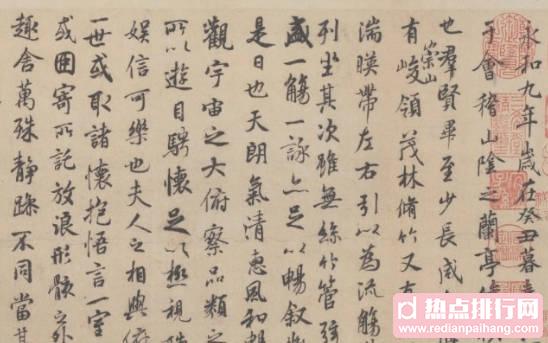 永和九年歲在癸丑暮
于會稽山陰之蘭亭
也羣賢畢至少長咸
有崇山峻領茂林脩竹又有
湍暎帶左右引以為流觴
列坐其次雖無絲竹管弦
盛一觴一詠亦足以暢叙
是日也天朗氣清惠風和
觀宇宙之大俯察品類之
所以遊目騁懷足以極視
娛信可樂也夫人之相與俯
一世或取諸懷抱悟言一室
或因寄所託放浪形骸之外
趣舍萬殊靜躁不同當其
热点排行网
www.redianpaihang.com